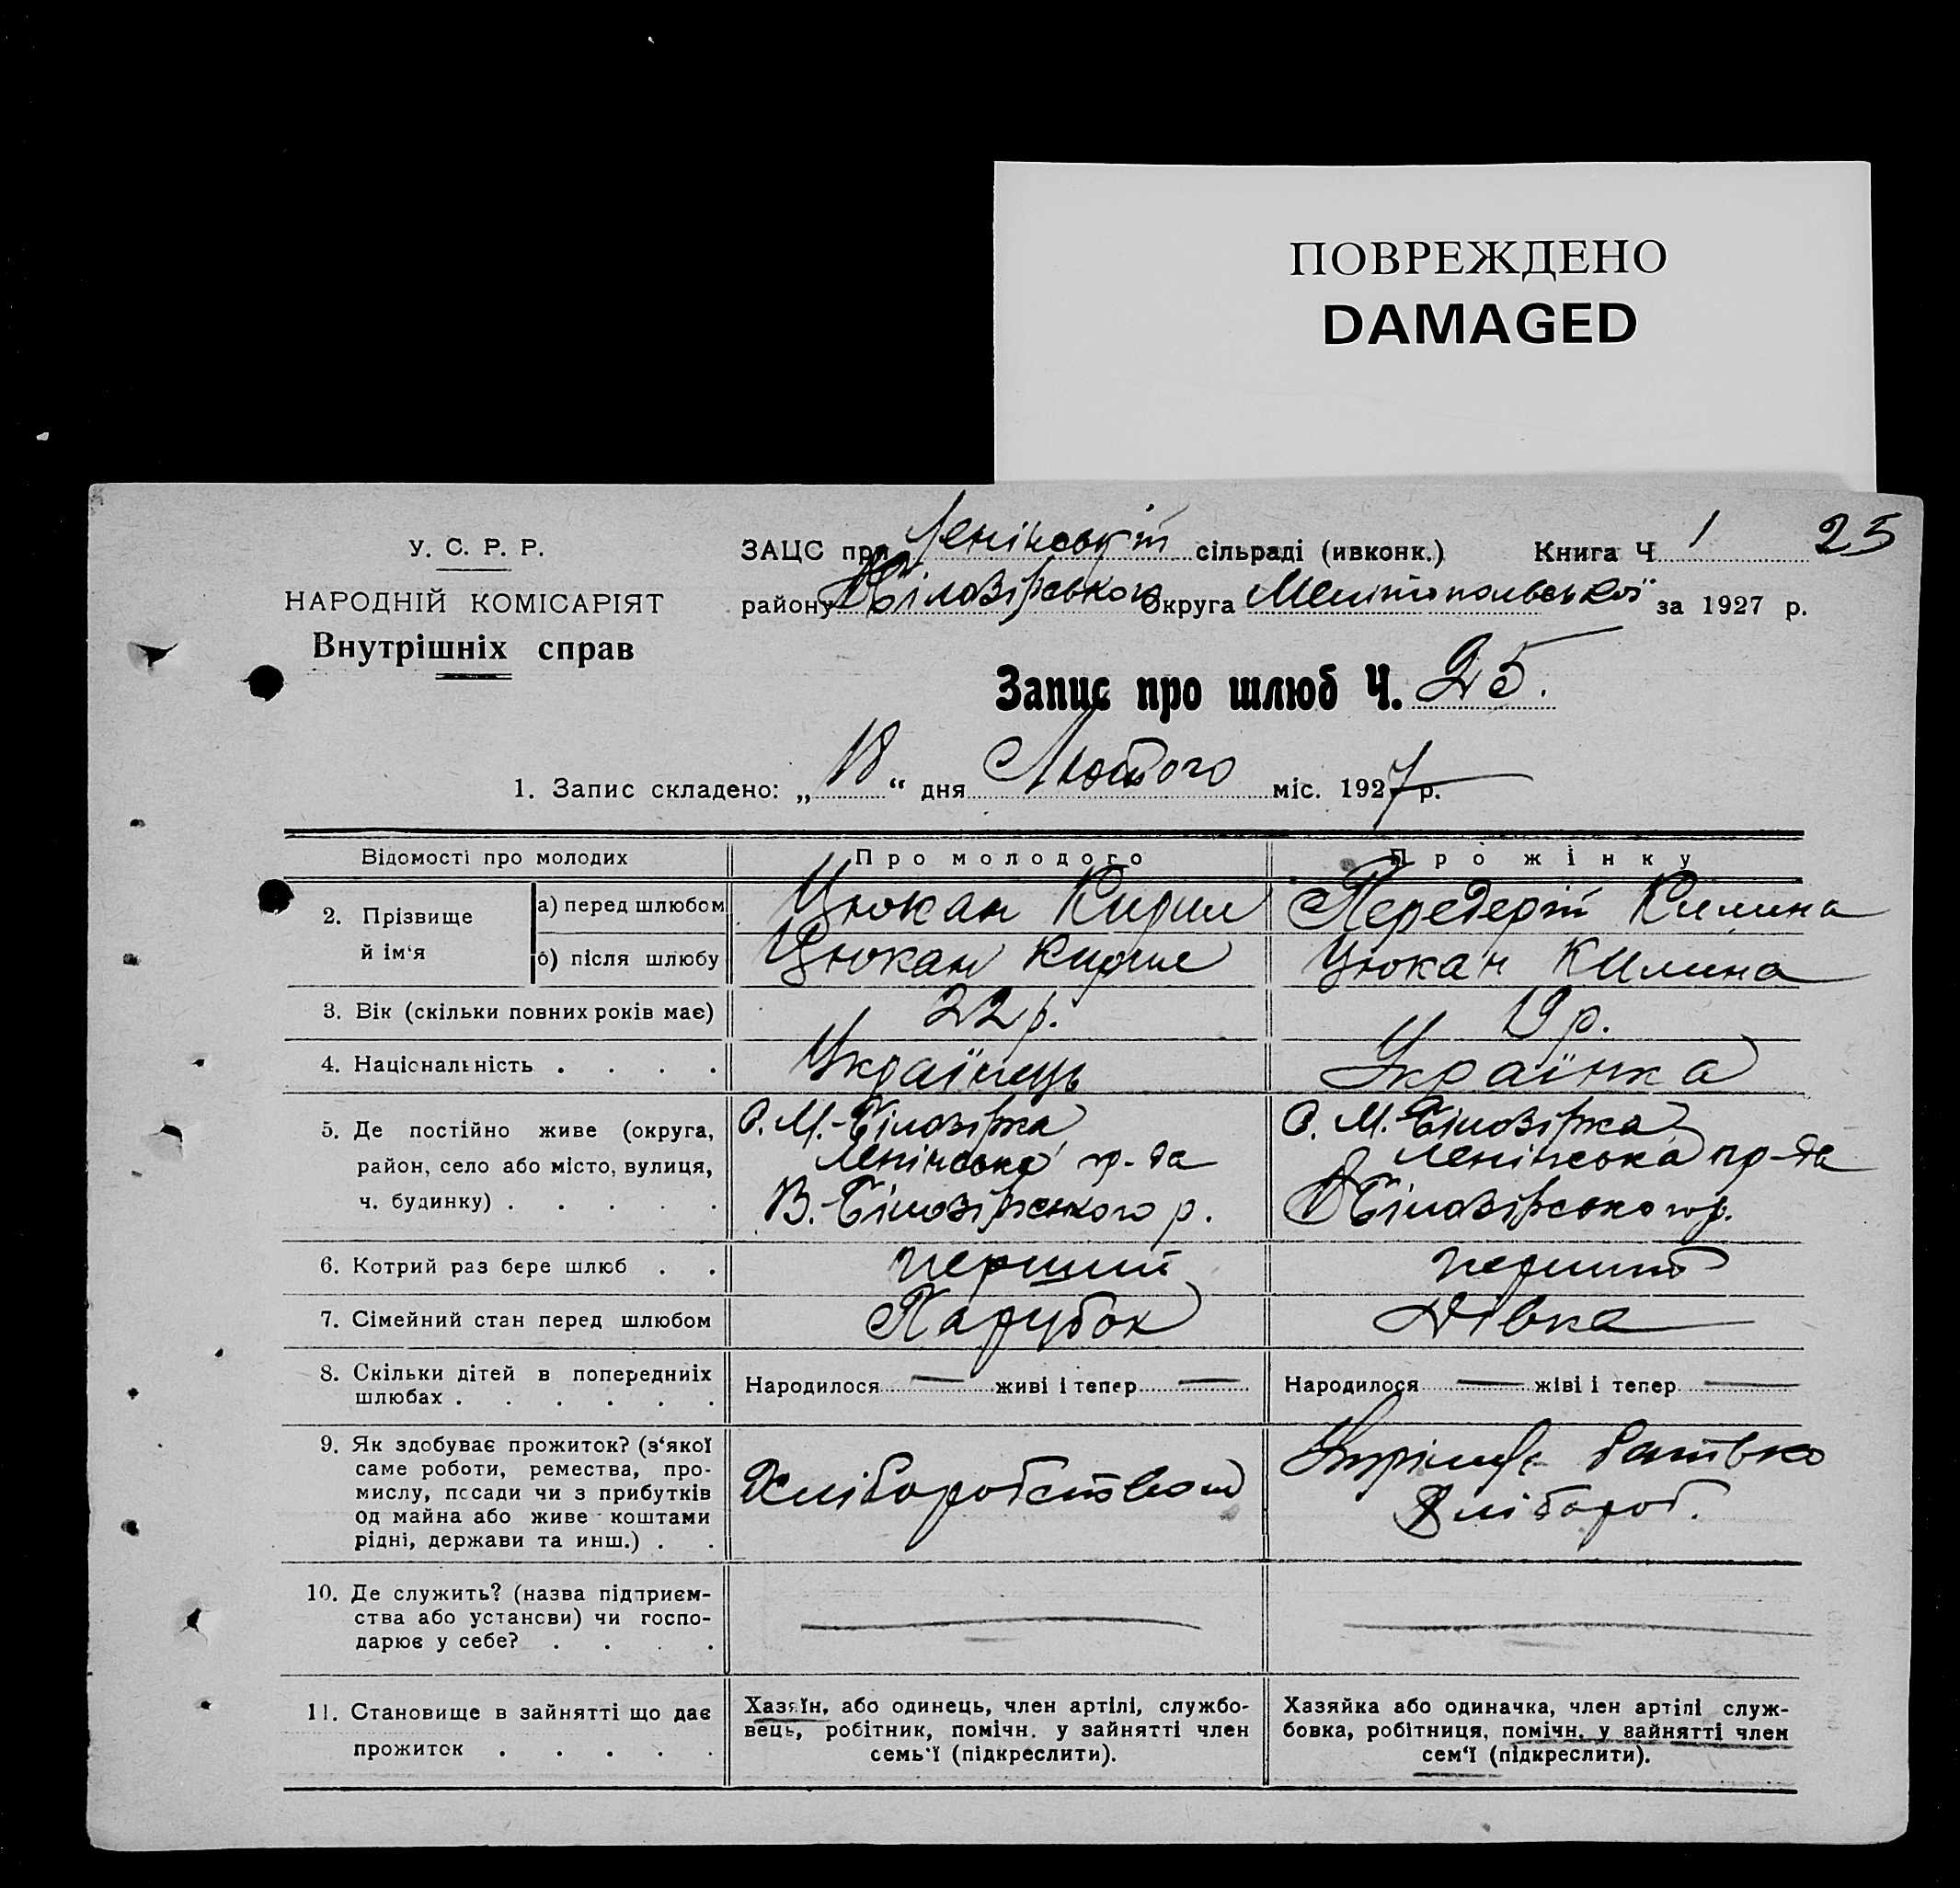 ПОВРЕЖДЕНО
DAMAGED
У. С. Р. Р.
НАРОДНІЙ КОМІСАРІЯТ
Внутрішніх справ
ЗАЦС при Ленінській сільраді (ивконк.) Книга Ч 1 25
району В Білозірського Округа Мелітопольської за 1927 р.
Запис про шлюб Ч. 25.
1. Запис складено: „ 18 “ дня Лютого міс. 1927 р.
Відомості про молодих Про молодого Про жінку
2. Прізвище й ім‘я
а) перед шлюбом Цюкан Кирил Передерій Килина
б) після шлюбу Цюкан Кирил Цюкан Килина
3. Вік (скільки повних років має) 22 р. 19 р.
4. Національність . . . . Українець Українка
5. Де постійно живе (округа, С. М.-Білозірка С. М. Білозірка
район, село або місто, вулиця, Ленінська ср-да Ленінська ср-да
ч. будинку) . . . . . В.-Білозірського р. В Білозірського р.
6. Котрий раз бере шлюб . . перший перший
7. Сімейний стан перед шлюбом Парубок Дівка
8. Скільки дітей в попередниіх Народилося — живі і тепер — Народилося — жіві і тепер —
шлюбах . . . . . .
9. Як здобуває прожиток? (з‘якої
саме роботи, ремества, про-
мислу, посади чи з прибутків
од майна або живе коштами
рідні, держави та инш.) . .
Хліборобством
батьків
Хлібороб.
10. Де служить? (назва підприєм-
ства або устансви) чи госпо-
дарює у себе? . . . .
11. Становище в зайнятті що дає
прожиток . . . . .
Хазяїн, або одинець, член артілі, службо-
вець, робітник, помічн. у зайнятті член
семь‘ї (підкреслити).
Хазяйка або одиначка, член артілі служ-
бовка, робітниця, помічн. у зайнятті член
сем‘ї (підкреслити).